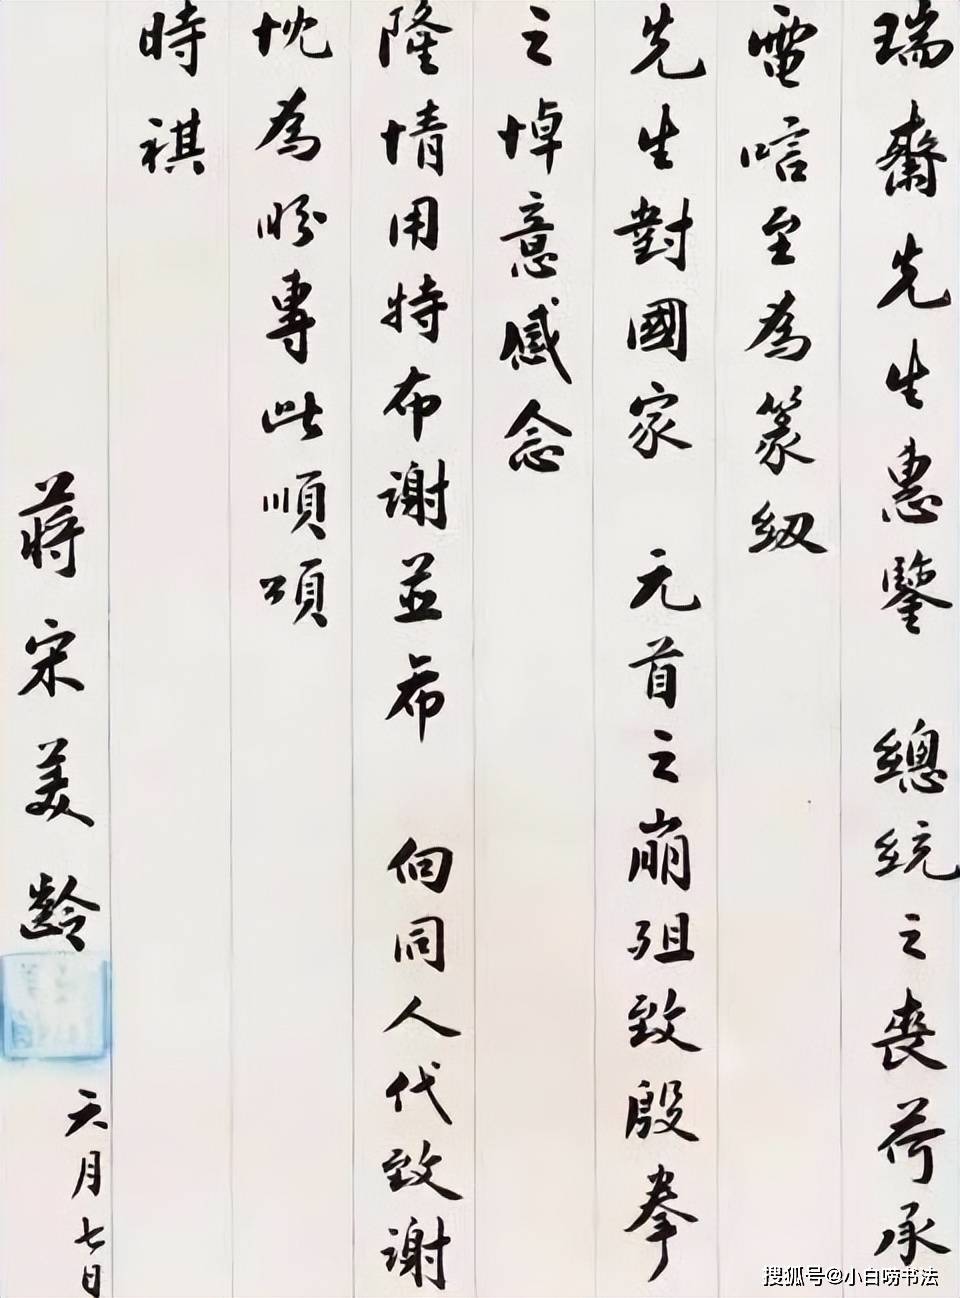 瑞齋先生惠鑒 總統之喪荷承
電唁至為篆紉
先生對國家 元首之崩殂致殷拳
之悼意感念
隆情用特布謝並希 向同人代致謝
忱為盼專此順頌
時祺
蔣宋美齡
六月七日
搜狐号@小白唠书法